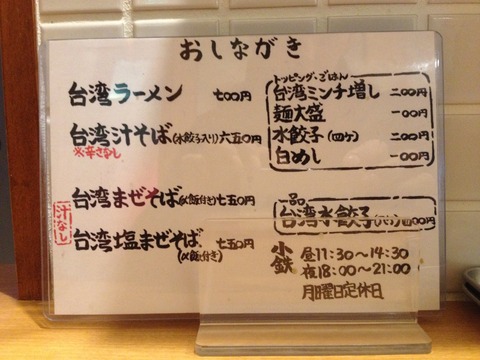 おしながき
台湾ラーメン 七〇〇円
台湾汁そば(水餃子入り)六五〇円
※辛さなし
汁なし
台湾まぜそば(〆飯付き)七五〇円
台湾塩まぜそば 七五〇円
(〆飯付き)
トッピング・ごはん
台湾ミンチ増し 二〇〇円
麺大盛 一〇〇円
水餃子(四ヶ) 二〇〇円
白めし 一〇〇円
一品
台湾水餃子
小鉄
昼11:30〜14:30
夜18:00〜21:00
月曜日定休日